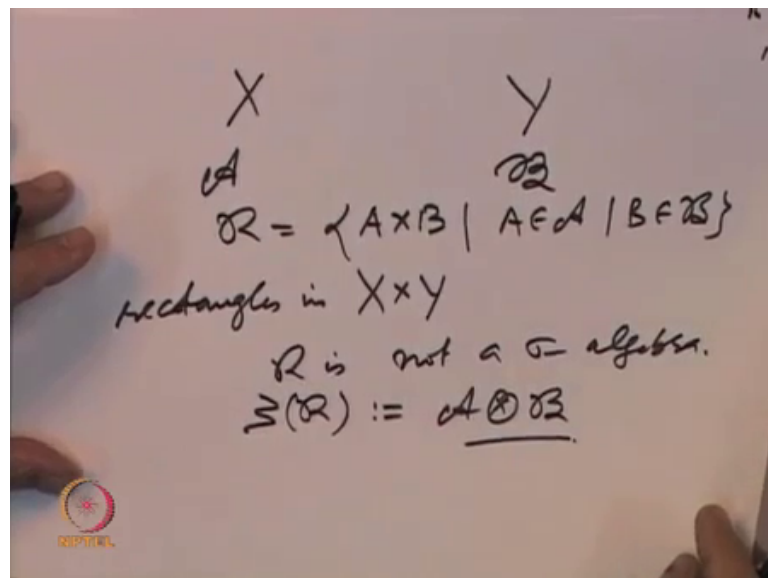 X Y
𝒜 ℬ
ℛ = { A × B | A ∈ 𝒜 | B ∈ ℬ }
rectangles in X × Y
ℛ is not a σ- algebra.
Ʒ(ℛ) := 𝒜 ⊗ ℬ
NPTEL